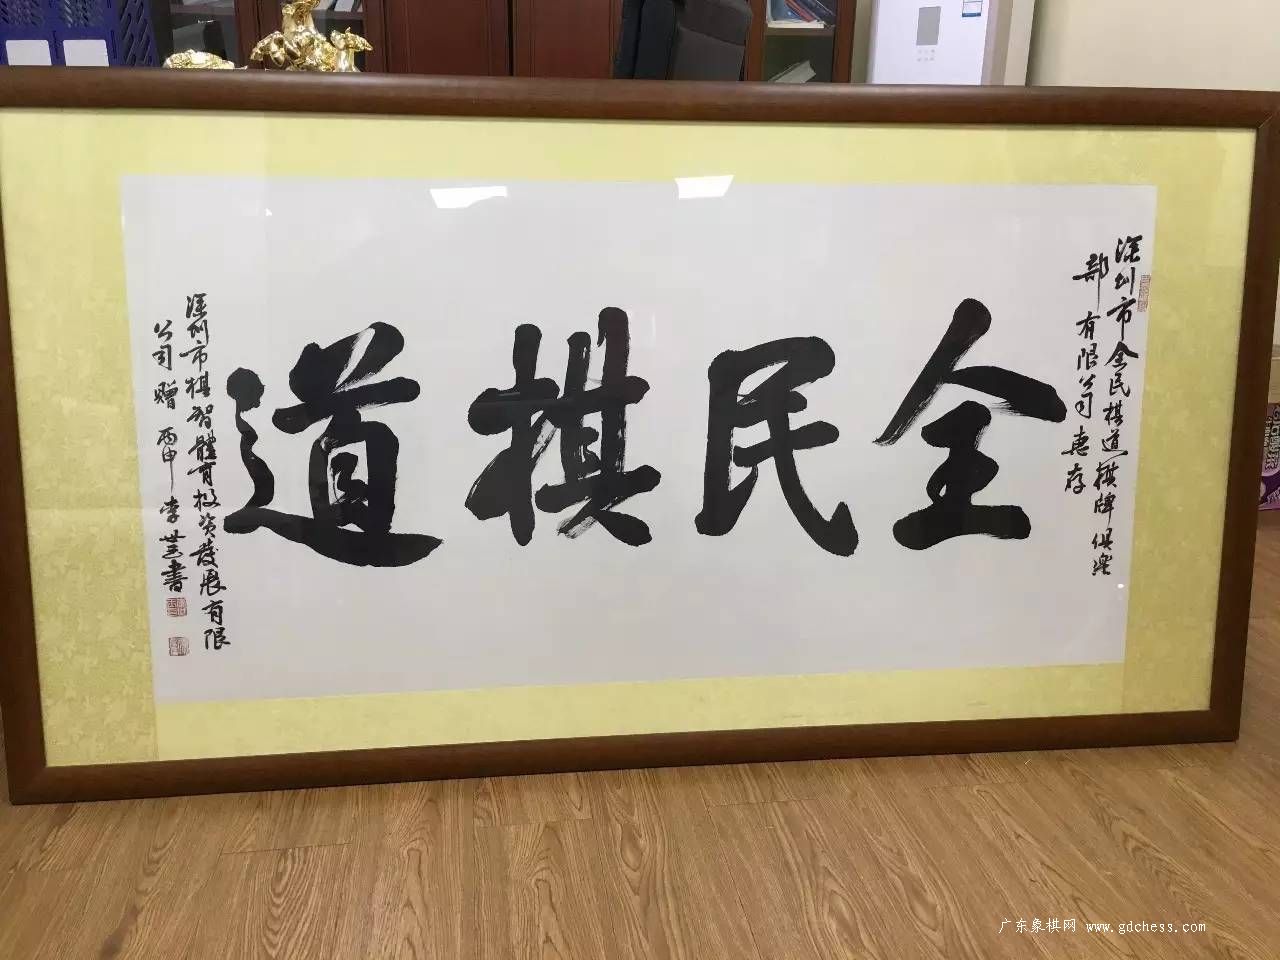 深圳市全民棋道棋牌俱樂
部有限公司惠存
全民棋道
深圳市棋智體育投资發展有限
公司贈 丙申 李世 書
广东象棋网 www.gdchess.com